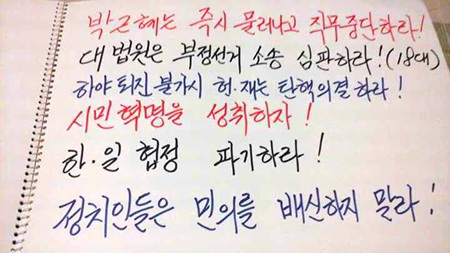 박근혜는 즉시 물러나고 직무중단하라!
대법원은 부정선거 소송 심판하라! (18대)
하야 퇴진 불가시 헌·재는 탄핵의결하라!
시민혁명을 성취하자!
한·일 협정 파기하라!
정치인들은 민의를 배신하지 말라!